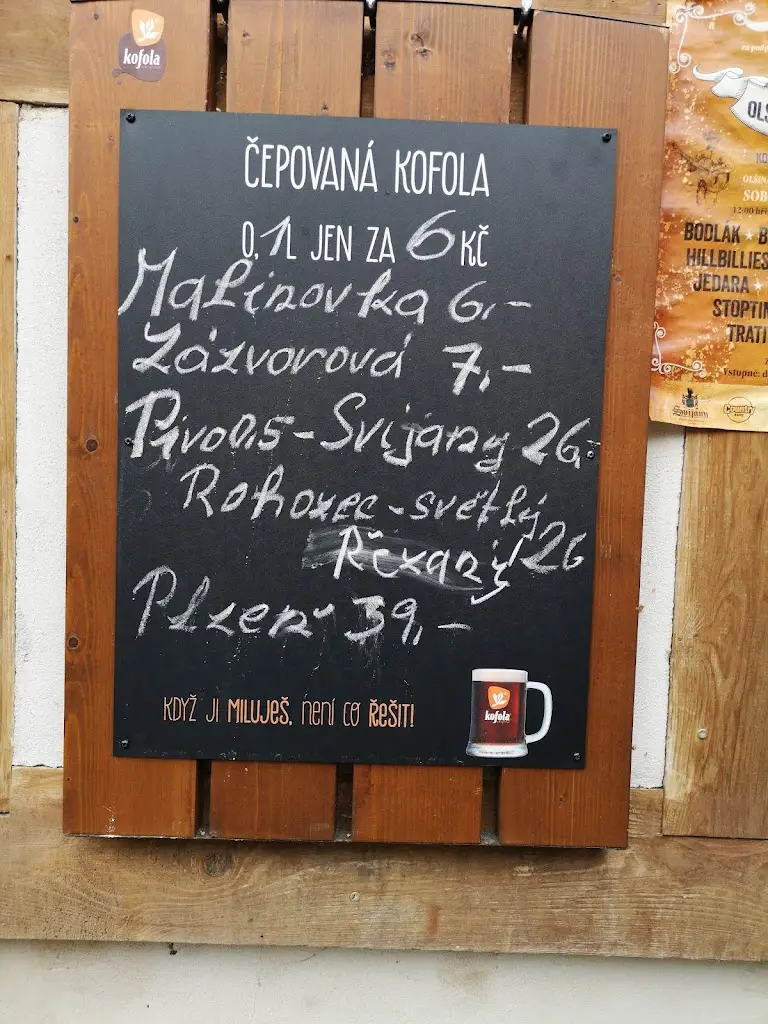 kofola
ČEPOVANÁ KOFOLA
0,1L JEN ZA 6 KČ
Malinovka 6,-
Zázvorová 7,-
Pivo 0,5 - Svijany 26,-
Rohozec - světlý
Řezaný 26
Plzeň 39,-
KDYŽ JI MILUJEŠ, NENÍ CO ŘEŠIT!
kofola
OLŠ
SOB
12:00
BODLÁK ★ B
HILLBILLIES
JEDARA ★
STOPTIN
TRATI
Vstupné: d
Svijany
Country